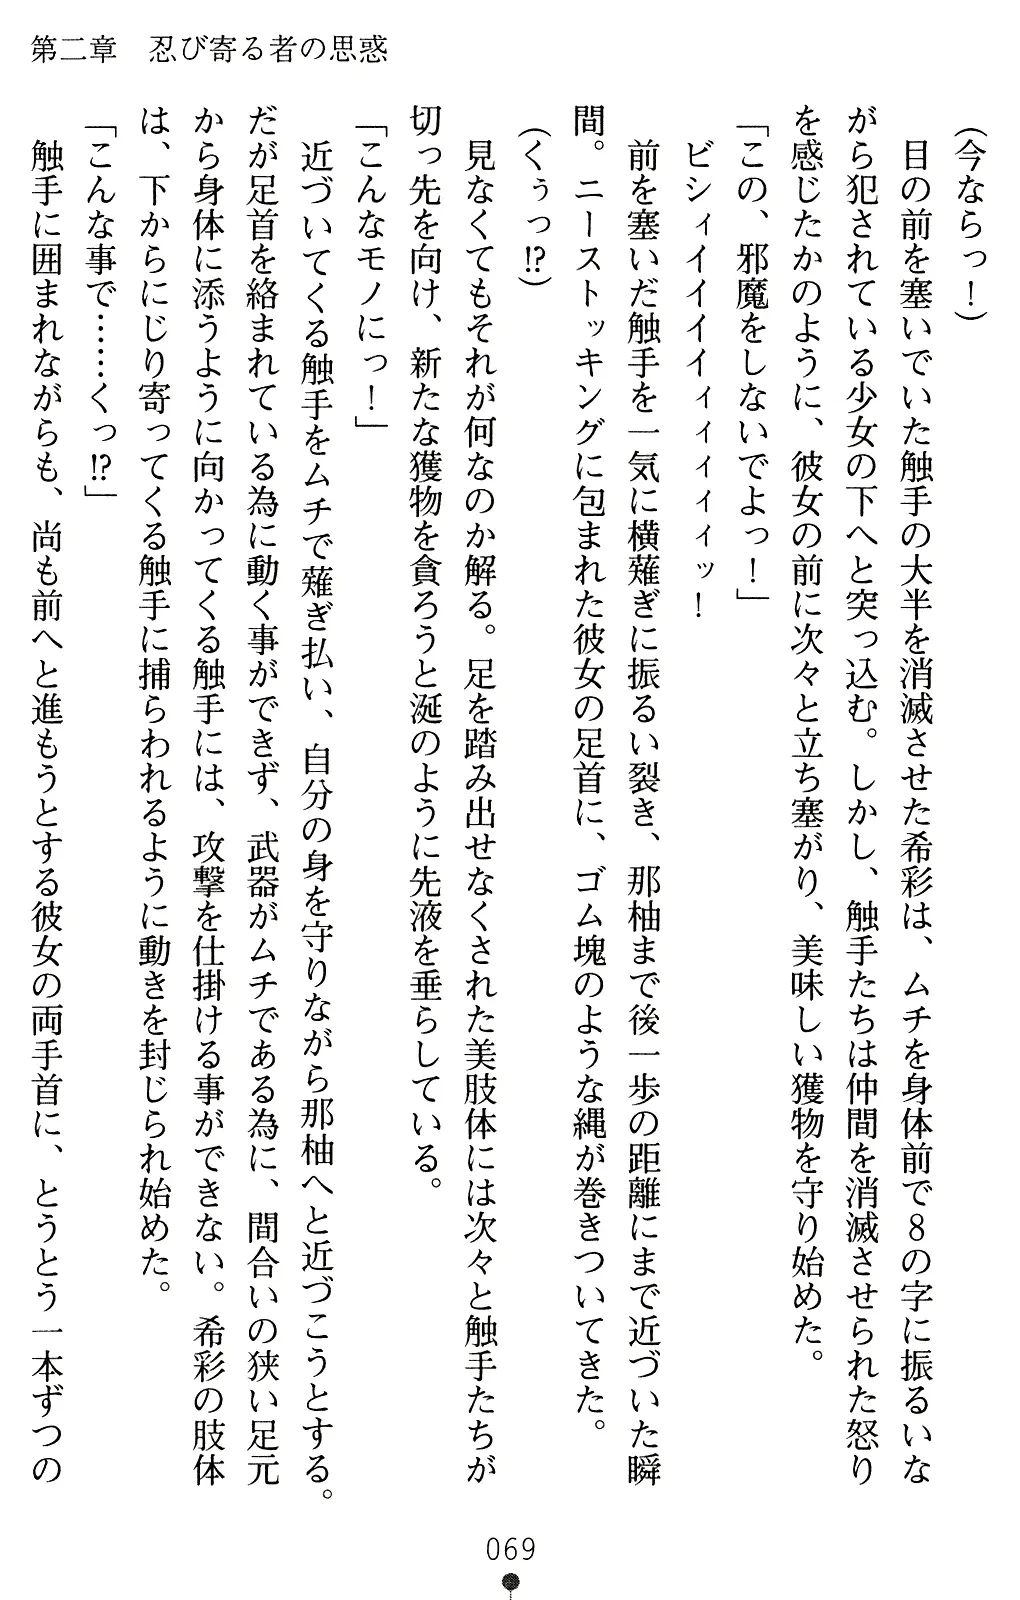 第二章　忍び寄る者の思惑
(今ならっ！)
目の前を塞いでいた触手の大半を消滅させた希彩は、ムチを身体前で８の字に振るいな
がら犯されている少女の下へと突っ込む。しかし、触手たちは仲間を消滅させられた怒り
を感じたかのように、彼女の前に次々と立ち塞がり、美味しい獲物を守り始めた。
「この、邪魔をしないでよっ！」
ビシィイイイイィィィィッ！
前を塞いだ触手を一気に横薙ぎに振るい裂き、那柚まで後一歩の距離にまで近づいた瞬
間。ニーストッキングに包まれた彼女の足首に、ゴム塊のような縄が巻きついてきた。
(くぅっ!?)
見なくてもそれが何なのか解る。足を踏み出せなくされた美肢体には次々と触手たちが
切っ先を向け、新たな獲物を貪ろうと涎のように先液を垂らしている。
「こんなモノにっ！」
近づいてくる触手をムチで薙ぎ払い、自分の身を守りながら那柚へと近づこうとする。
だが足首を絡まれている為に動く事ができず、武器がムチである為に、間合いの狭い足元
から身体に添うように向かってくる触手には、攻撃を仕掛ける事ができない。希彩の肢体
は、下からにじり寄ってくる触手に捕らわれるように動きを封じられ始めた。
「こんな事で……くっ!?」
触手に囲まれながらも、尚も前へと進もうとする彼女の両手首に、とうとう一本ずつの
069